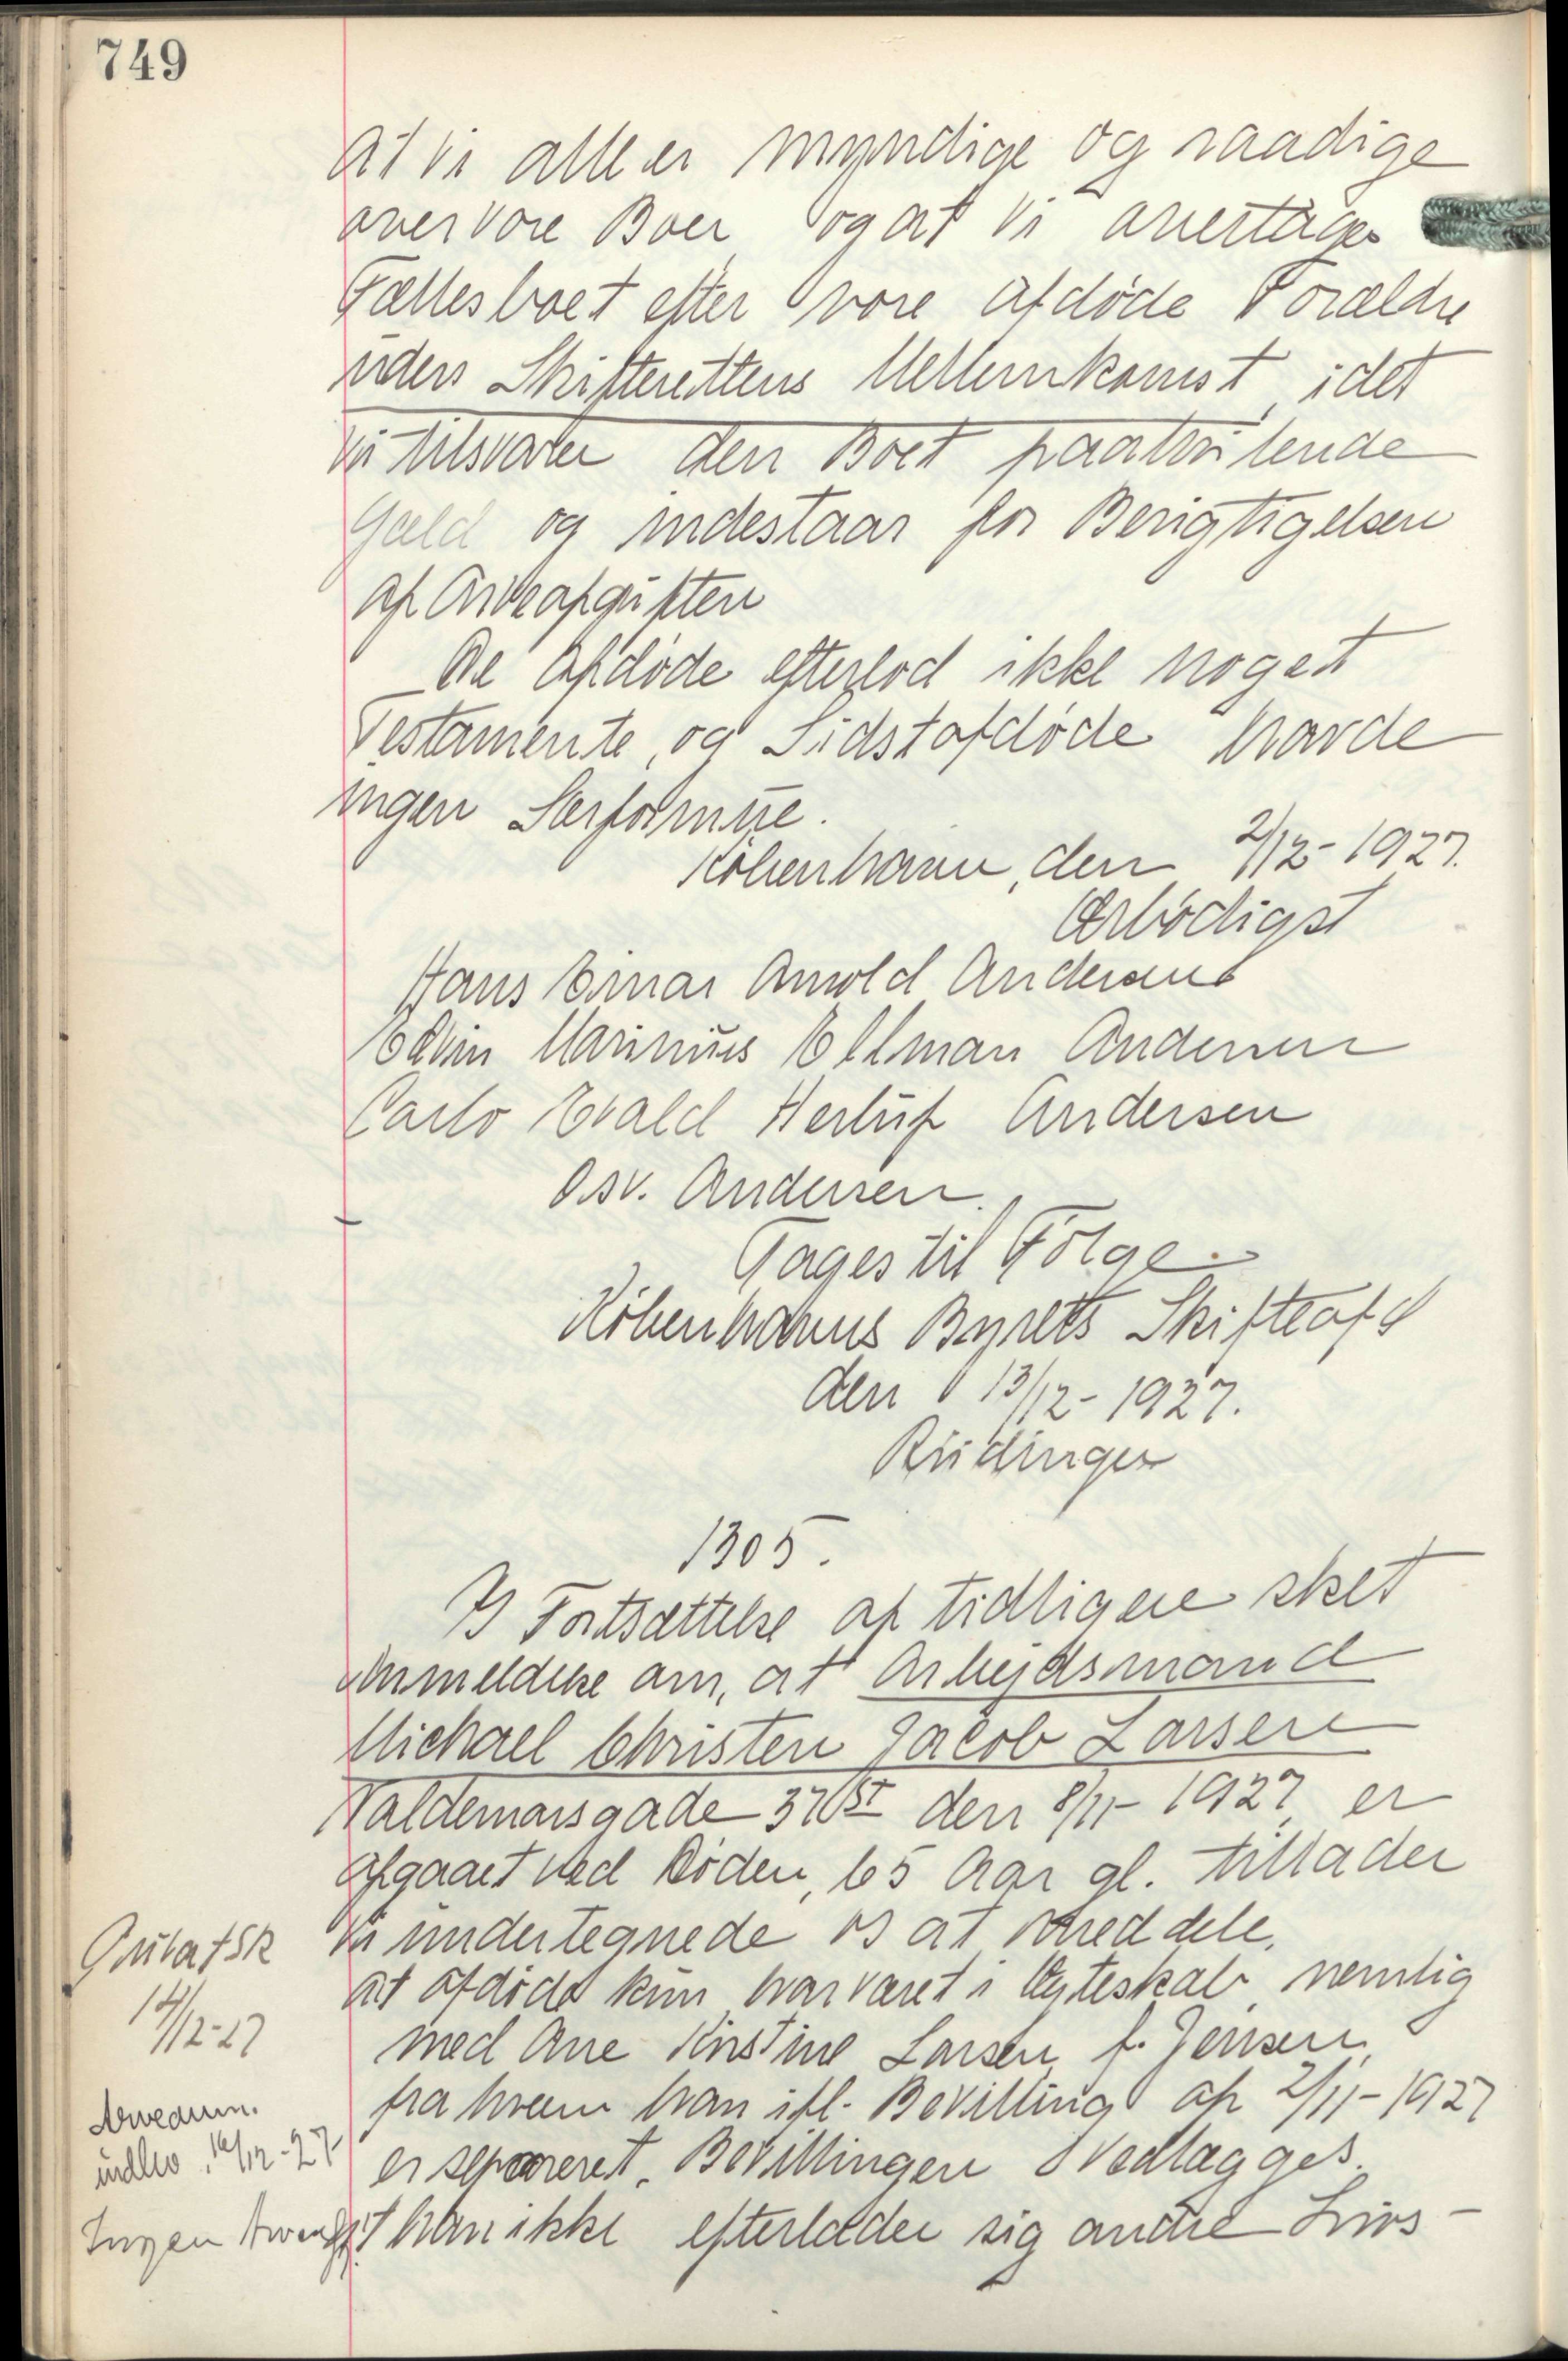 749
at vi alle er myndige og raadige
over vore Boer, og at vi overtager
Fællesboet efter vore afdøde Forældre
uden Skifterettens Mellemkomst, idet
vi tilsvarer den Boet paahvilende
Gæld og indestaar for Berigtigelsen
af Arveafgiften
De afdøde efterlod ikke noget
Testamente, og Sidstafdøde havde
ingen Særformue.
København, den 2/12-1927.
Ærbødigst
Hans Einar Arnold Andersen
Edvin Marinus Ellman Andersen
Carlo Evald Herluf Andersen
Osv. Andersen.
Tages til Følge.
Københavns Byrets Skifteafd
den 13/12-1927.
Rüdinger
1305.
I Fortsættelse af tidligere sket
Anmeldelse om, at Arbejdsmand
Michael Christen Jacob Larsen
Valdemarsgade 37 St den 8/11-1927 er
afgaaet ved Døden, 65 Aar gl. tillader
vi undertegnede os at meddele,
at afdøde kun har været i Ægteskab, nemlig
med Ane Kirstine Larsen f. Jensen,
fra hvem han ifl. Bevilling af 2/11-1927
er separeret. Bevillingen vedlægges.
at han ikke efterlader sig andre Livs-
Privat Sk
14/12-27
Arveanm.
indlev. 16/12-27
Ingen Arveafgift